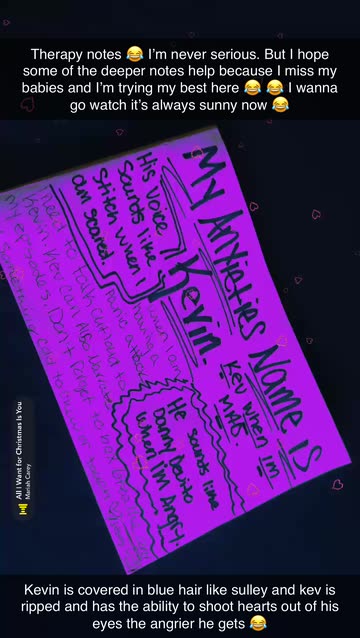 Therapy notes 😂 I'm never serious. But I hope
some of the deeper notes help because I miss my
babies and I'm trying my best here 😂 😂 I wanna
go watch it's always sunny now 😂
My Anxieties Name is
Kevin.
His voice
Sounds like
Stitch when
am scared
Kev when Im
MAD.
He sounds like
Danny Devito
when I'm Angry.
when I am
having a
panic attack
need to talk to
Kevin. Kev can Also
my episodes. Don't forget to
All I Want for Christmas Is You
Mariah Carey
Kevin is covered in blue hair like sulley and kev is
ripped and has the ability to shoot hearts out of his
eyes the angrier he gets 😂